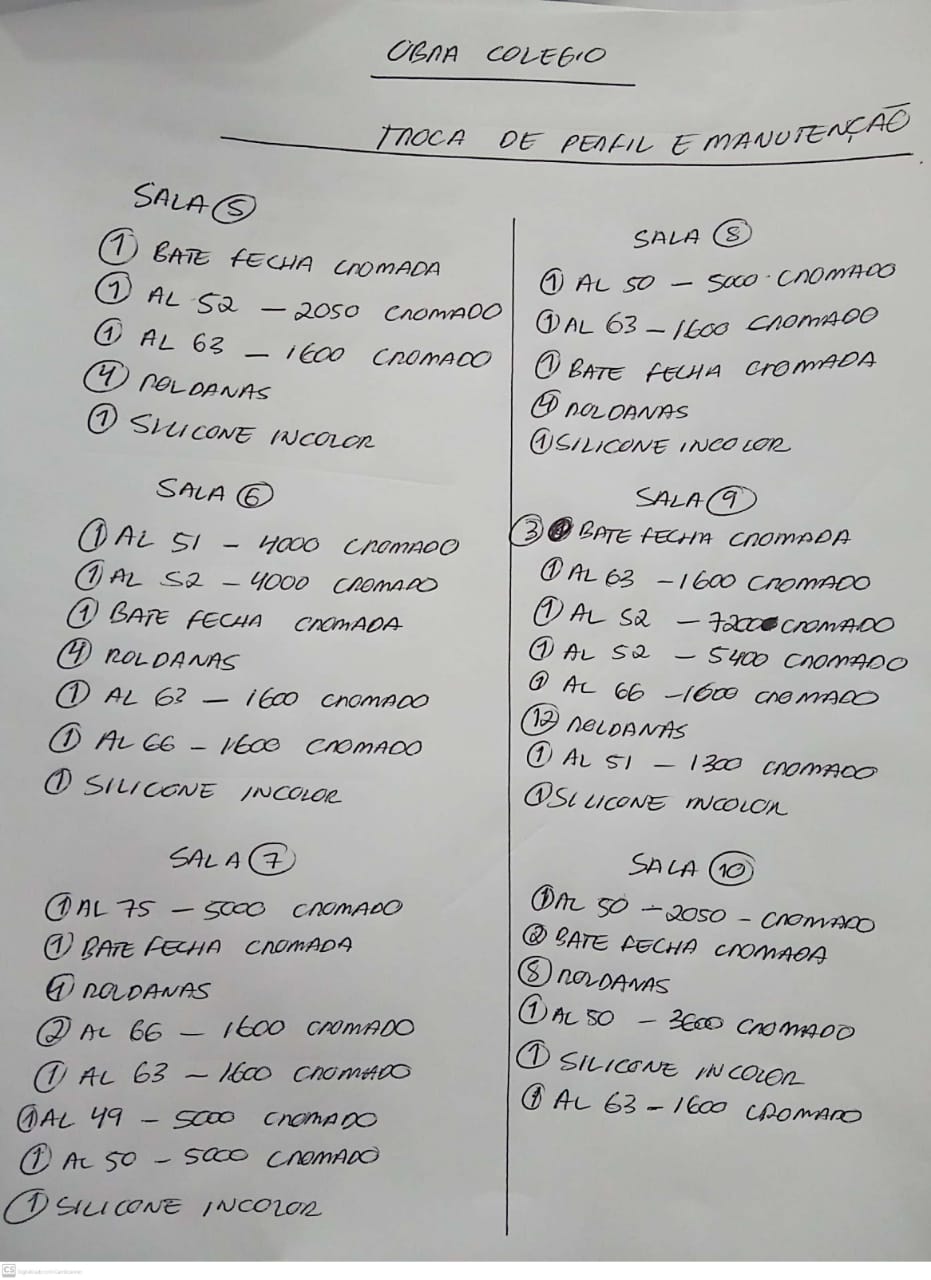 OBRA COLEGIO
TROCA DE PERFIL E MANUTENÇÃO
SALA 5
1 BATE FECHA CROMADA
1 AL 52 - 2050 CROMADO
1 AL 63 - 1600 CROMADO
4 ROLDANAS
1 SILICONE INCOLOR
SALA 6
1 AL 51 - 4000 CROMADO
1 AL 52 - 4000 CROMADO
1 BATE FECHA CROMADA
4 ROLDANAS
1 AL 63 - 1600 CROMADO
1 AL 66 - 1600 CROMADO
1 SILICONE INCOLOR
SALA 7
1 AL 75 - 5000 CROMADO
1 BATE FECHA CROMADA
4 ROLDANAS
2 AL 66 - 1600 CROMADO
1 AL 63 - 1600 CROMADO
1 AL 49 - 5000 CROMADO
1 AL 50 - 5000 CROMADO
1 SILICONE INCOLOR
SALA 8
1 AL 50 - 5000 CROMADO
1 AL 63 - 1600 CROMADO
1 BATE FECHA CROMADA
4 ROLDANAS
1 SILICONE INCOLOR
SALA 9
3 BATE FECHA CROMADA
1 AL 63 - 1600 CROMADO
1 AL 52 - 7200 CROMADO
1 AL 52 - 5400 CROMADO
1 AL 66 - 1600 CROMADO
12 ROLDANAS
1 AL 51 - 1300 CROMADO
1 SILICONE INCOLOR
SALA 10
1 AL 50 - 2050 - CROMADO
2 BATE FECHA CROMADA
8 ROLDANAS
1 AL 50 - 3600 CROMADO
1 SILICONE INCOLOR
1 AL 63 - 1600 CROMADO
CS